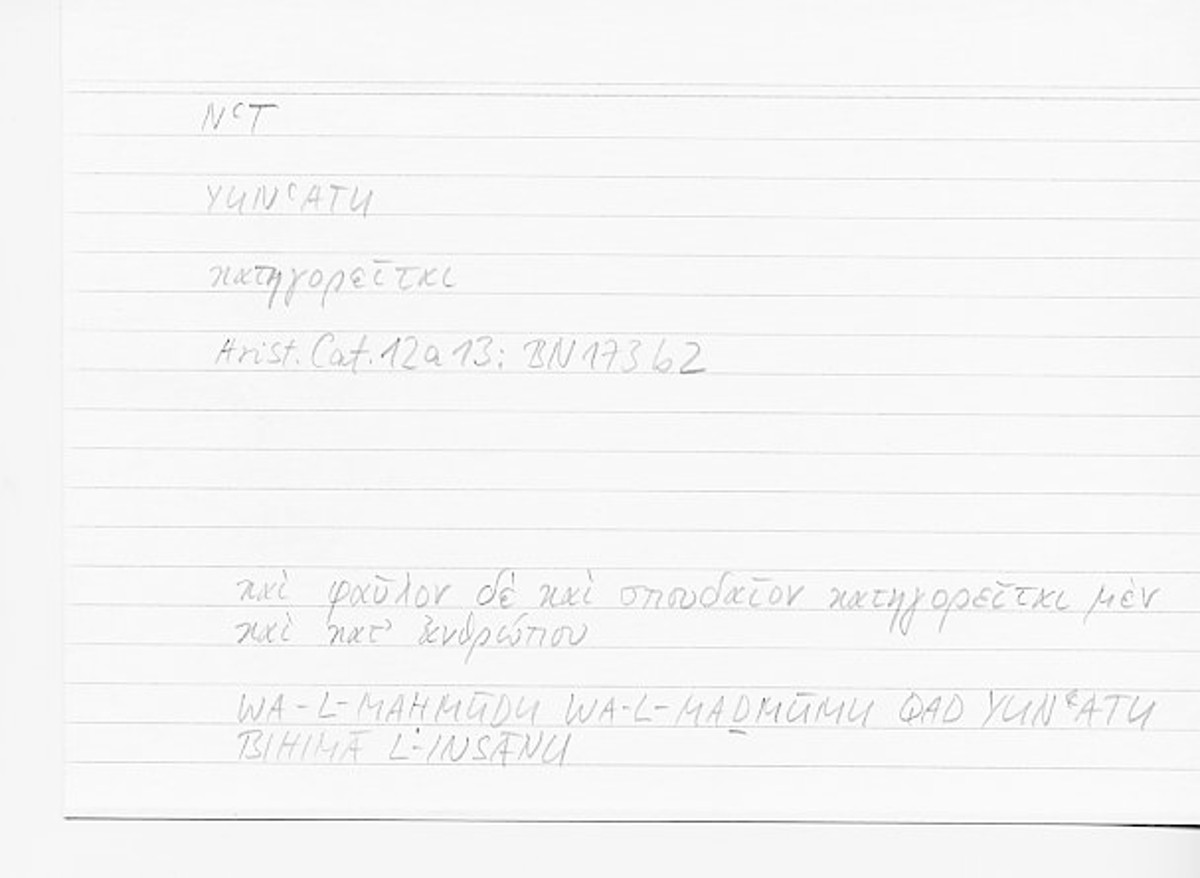 NʿT
YUNʿATU
κατηγορεῖται
Arist. Cat. 12a13: BN 173b2
καὶ φαῦλον δὲ καὶ σπουδαῖον κατηγορεῖται μὲν
καὶ κατ' ἀνθρώπου
WA-L-MAḤMŪDU WA-L-MAḎMŪMU QAD YUNʿATU
BIHIMĀ L-INSĀNU